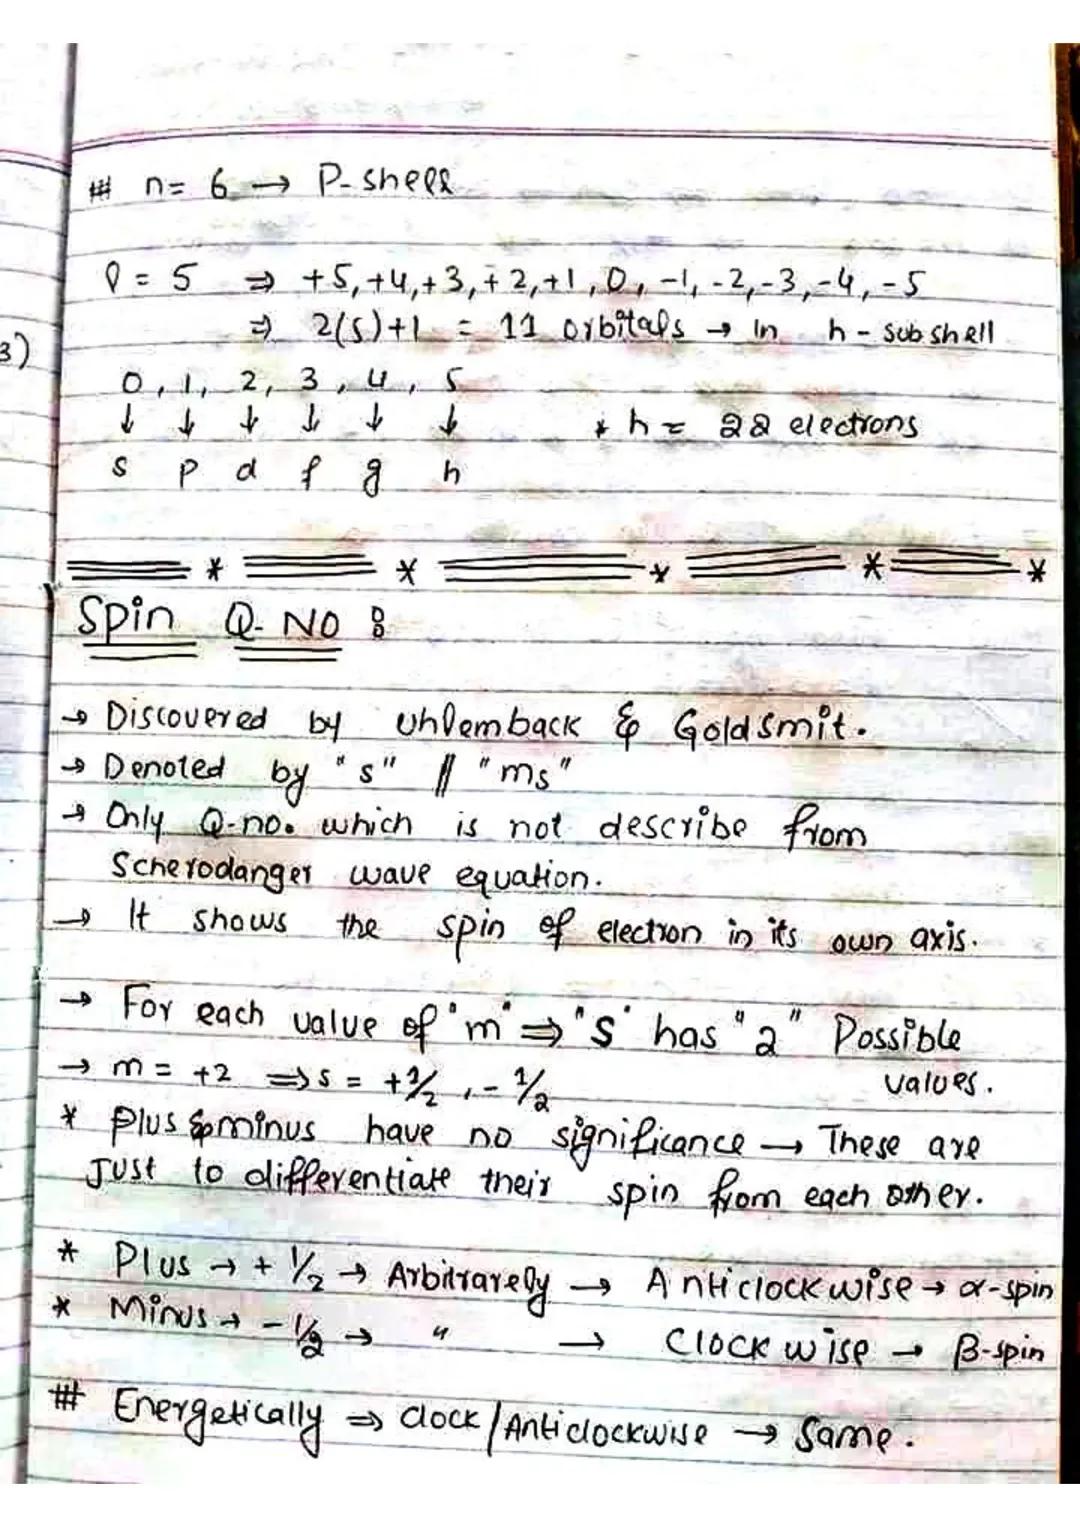 3)
# n= 6 → P-shell
l = 5 ⇒ +5,+4,+3,+2,+1,0,-1,-2,-3,-4,-5
⇒ 2(5)+1 = 11 orbitals → In h - subshell
0, 1, 2, 3, 4, 5
↓ ↓ ↓ ↓ ↓ ↓ * h = 22 electrons
s p d f g h
Spin Q. NO :
→ Discovered by Uhlemback & Goldsmit.
→ Denoted by "s" // "ms"
→ Only Q-no. which is not describe from
Scherodanger wave equation.
→ It shows the spin of electron in its own axis.
→ For each value of "m" ⇒ "s" has "2" Possible
values.
→ m = +2 ⇒ s = +1/2, -1/2
* Plus & minus have no significance → These are
Just to differentiate their spin from each other.
* Plus → + 1/2 → Arbitrarely → Anticlockwise → α-spin
* Minus → - 1/2 → " → Clockwise → β-spin
# Energetically ⇒ clock/Anticlockwise → Same.